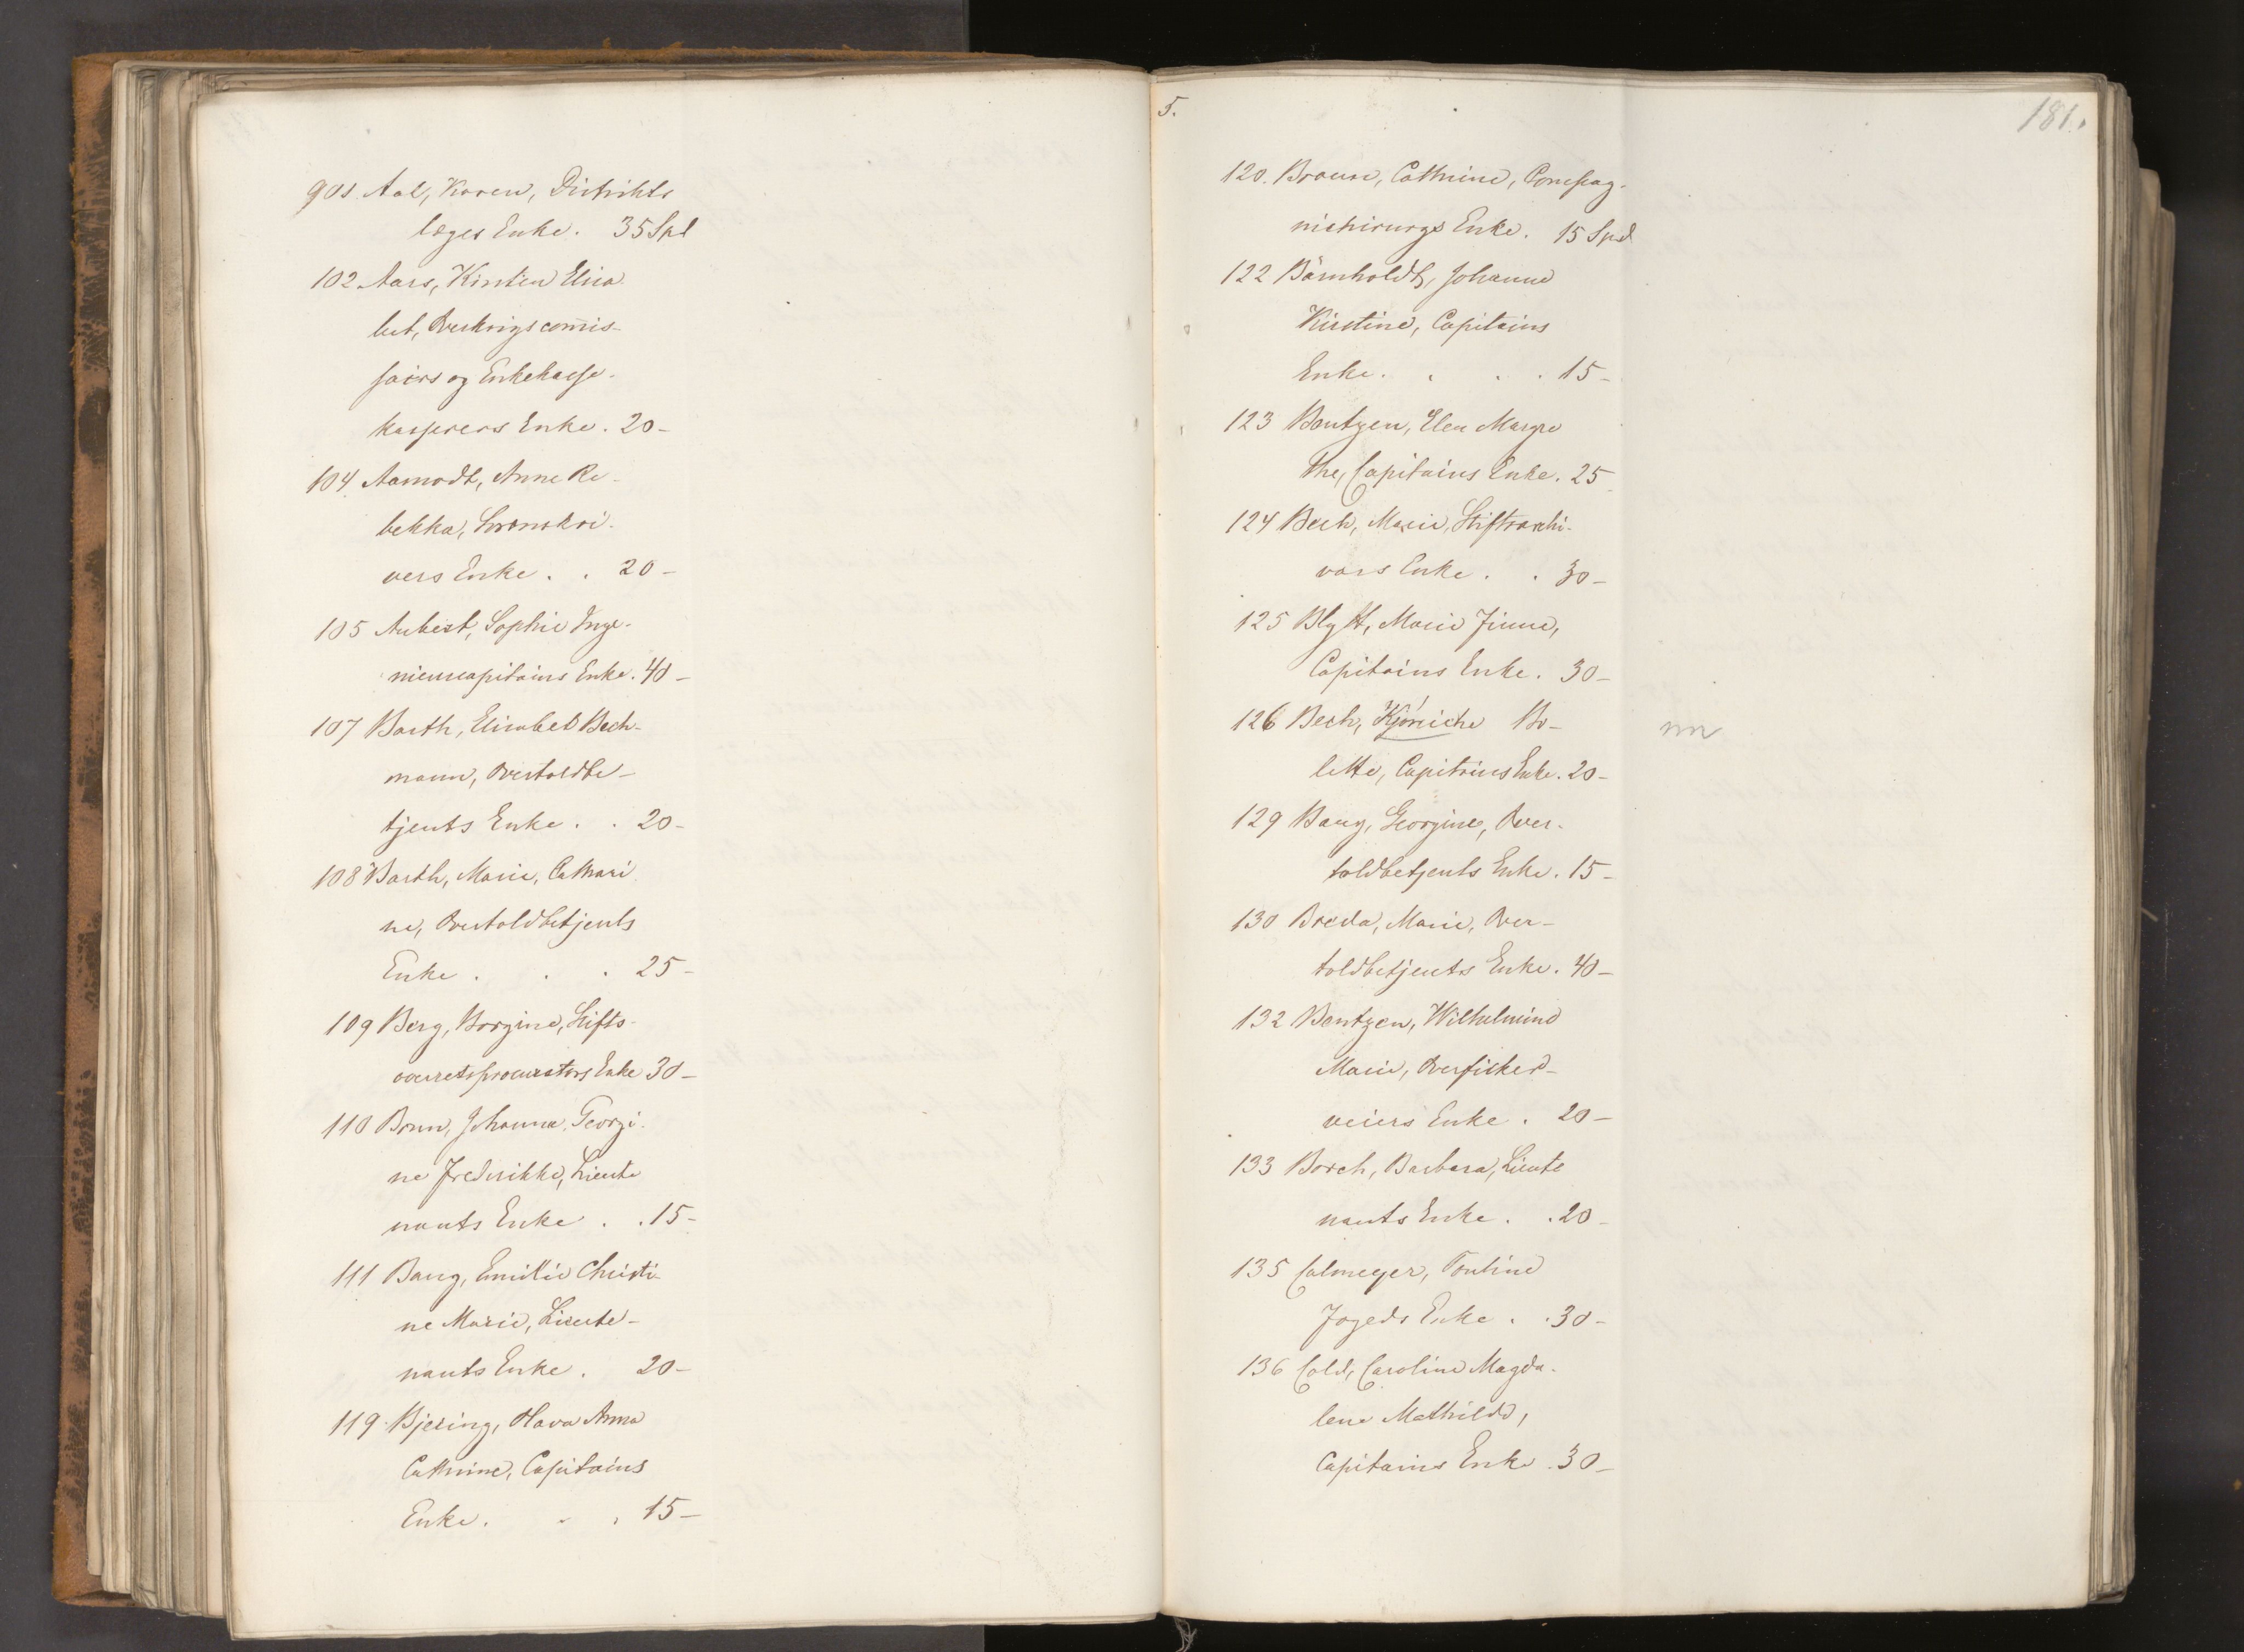 901 Aal, Karen, Distrikts
læges Enke. 35 Spd
102 Aars, Kirsten Elisa
bet, Overkrigscom̄is-
sairs og Enkekasse-
kasserers Enke. 20-
104 Aamodt, Anne Re-
bekka, Sorenskri-
vers Enke . . 20-
105 Aubert, Sophie Inge-
nieurcapitains Enke. 40-
107 Barth, Elisabet Bech-
mann, Overtoldbe-
tjents Enke . . 20-
108 Barth, Marie, Cathari
ne, Overtoldbetjents
Enke . . . 25-
109 Berg, Borgine, Stifts-
overretsprocurators Enke 30-
110 Brun, Johanna Georgi-
ne Frederikke, Lieute
nants Enke . . 15-
111 Bang, Emilie Christi-
ne Marie, Lieute-
nants Enke . 20-
119 Bjering, Olava Anna
Cathrine, Capitains
Enke. . . 15-
5.
181.
120. Braun, Cathrine, Compag-
nichirurgs Enke. 15 Spd
122 Barnholdt, Johanne
Kirstine, Capitains
Enke. . . . 15-
123 Bentzen, Elen Margre
the, Capitains Enke. 25
124 Bech, Marie, Stiftsarchi-
vars Enke . . 30-
125 Blytt, Marie Finne,
Capitains Enke. 30-
126 Bech, Kjöniche Bo-
lette, Capitains Enke. 20-
129 Bang, Georgine, Over-
toldbetjents Enke. 15-
130 Breda, Marie, Over-
toldbetjents Enke. 40-
132 Bentzen, Wilhelmine
Marie, Overfisker-
veiers Enke . 20-
133 Borch, Barbara, Lieute
nants Enke . . 20-
135 Calmeyer, Pouline
Fogeds Enke . . 30-
136 Cold, Caroline Magda-
lene Mathilde,
Capitains Enke. 30-